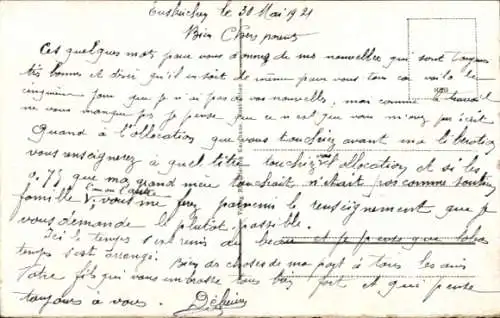 Euskirchen le 30 Mai 1921
Bien Chers parents
Ces quelques mots pour vous donner de mes nouvelles qui sont toujours
très bonnes et désir qu'il en soit de même pour vous tous car voila le
cinquième jour que je n'ai pas de vos nouvelles, mais comme le travail
ne vous manque pas je pense que ce n'est que vous m'avez pas écrit
Quand à l'allocation que vous touchiez avant ma libération
vous enseignerez à quel titre vous touchiez l'allocation, et si les
0.75 que ma grand mère touchait n'était pas comme soutien
famille
vous me ferez parvenir le renseignement que je
vous demande le plutôt possible.
Ici le temps s'est remis du beau et je pense que labas
temps s'est arrangé. Bien des choses de ma part à tous les amis
Votre fils qui vous embrasse tous bien fort et qui pense
toujours à vous.